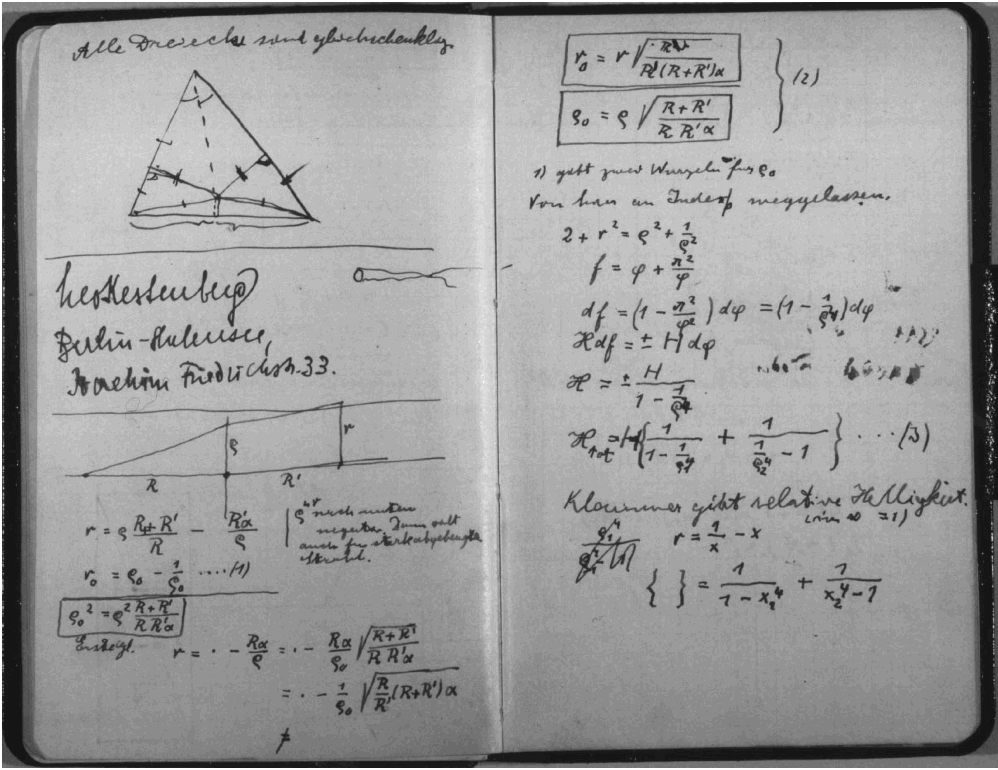 Alle Dreiecke sind gleichschenklig
Leo Kestenberg
Berlin-Halensee,
Joachim Friedrichstr. 33.
ρ r
R R'
r = ρ (R+R')/R − R'α/ρ
ρ u r nach unten
negativ. Dann gilt
auch für stark abgebeugte
Strahl.
r₀ = ρ₀ − 1/ρ₀ ....(1)
ρ₀² = ρ² (R+R')/(R R'α)
r = · − Rα/ρ = · − Rα/ρ₀ √((R+R')/(R R'α))
= · − 1/ρ₀ √(R/R' (R+R')α)
≠
r₀ = r √(R/(R'(R+R')α))
ρ₀ = ρ √((R+R')/(R R'α))
} (2)
1) gibt zwei Wurzeln für ρ₀
Von hier an Index weggelassen.
2 + r² = ρ² + 1/ρ²
f = φ + π²/φ
df = (1 − π²/φ²) dφ = (1 − 1/ρ⁴) dφ
ℋ df = ± H dφ
ℋ = ± H/(1 − 1/ρ⁴)
ℋ_tot = H {1/(1 − 1/ρ₁⁴) + 1/(1/ρ₂⁴ − 1)} ....(3)
Klammer gibt relative Helligkeit.
= 1)
r = 1/x − x
{ } = 1/(1 − x₁⁴) + 1/(x₂⁴ − 1)